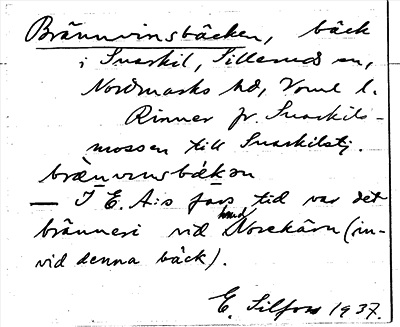 Brännvinsbäcken, bäck
i Snarkil, Sillerud sn,
Nordmarks hd, Vrml l.
Rinner fr. Snarkils-
mossen till Snarkilstj.
brænvinsbäkən
— I E. A:s fars tid var det
bränneri vid hmd Norekärn (in-
vid denna bäck).
E. Silfors 1937.